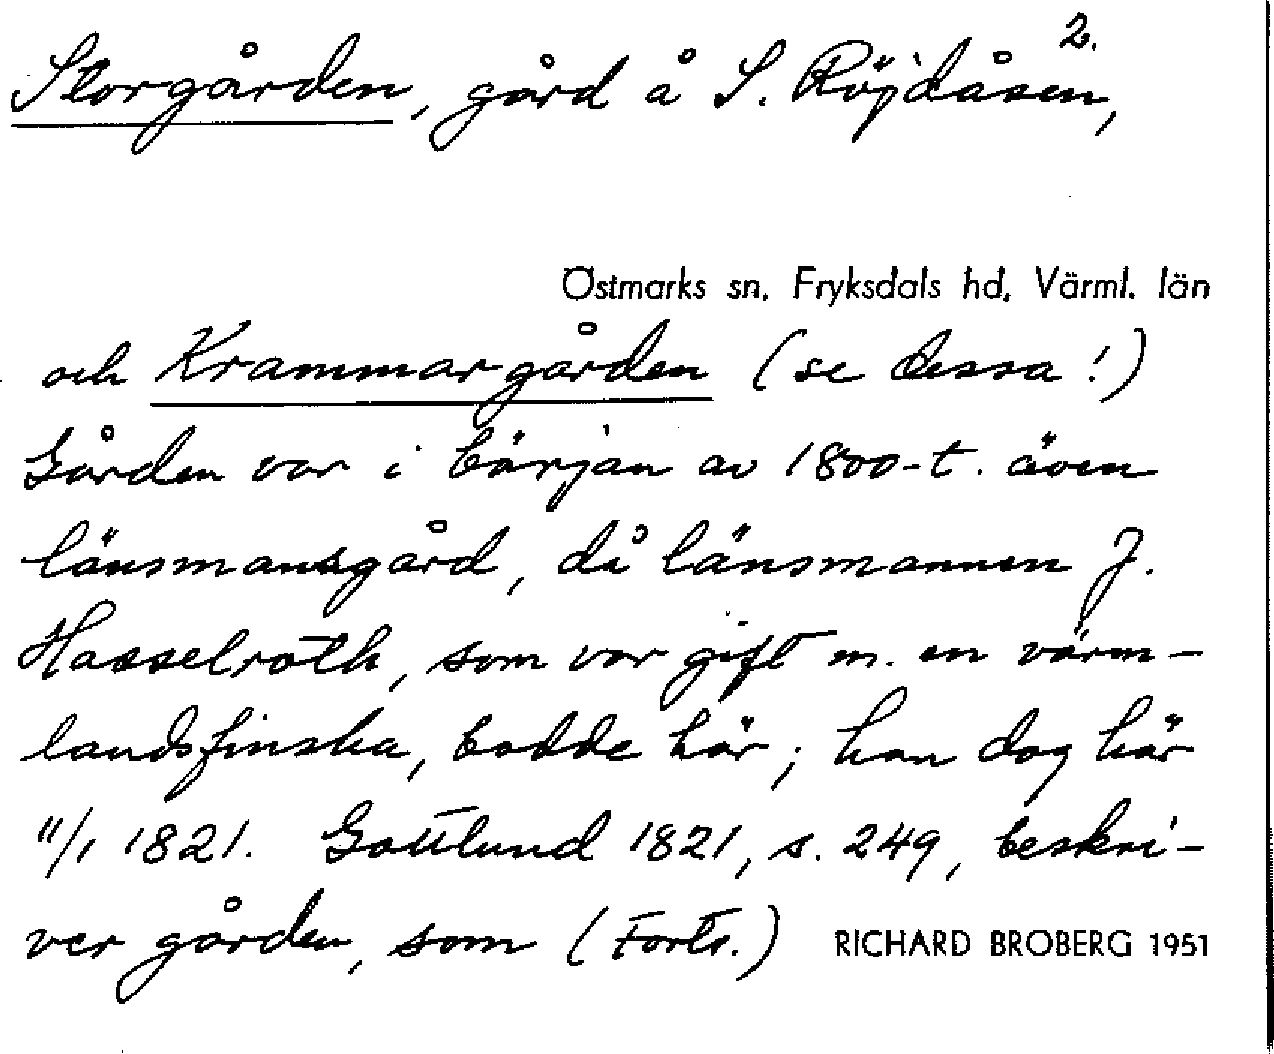 2.
Storgården, gård å S. Röjdåsen,
Östmarks sn, Fryksdals hd, Värml. län
och Krammargården (se dessa!)
Gården var i början av 1800-t. även
länsmansgård, då länsmannen J.
Hasselroth, som var gift m. en värm-
landsfinska, bodde här; han dog här
11/1 1821. Gottlund 1821, s. 249, beskri-
ver gården, som (Forts.) RICHARD BROBERG 1951